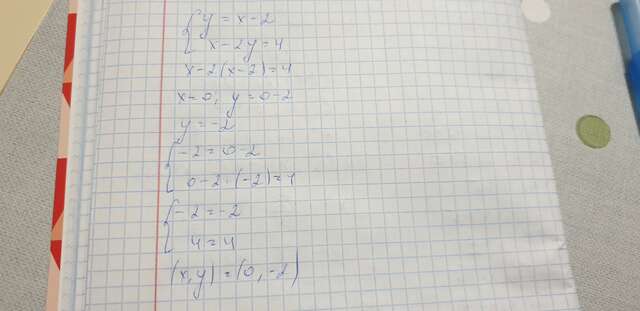 y = x - 2
x - 2y = 4
x - 2(x - 2) = 4
x = 0, y = 0 - 2
y = -2
-2 = 0 - 2
0 - 2 · (-2) = 4
-2 = -2
4 = 4
(x, y) = (0, -2)